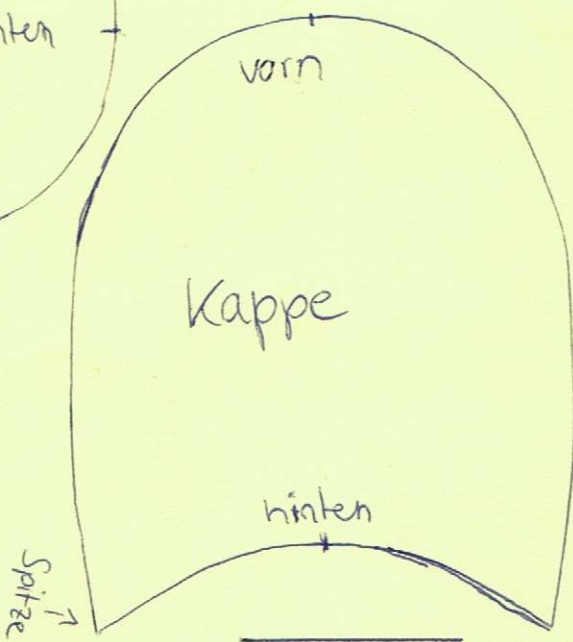 nten
vorn
Kappe
hinten
↑
Spitze